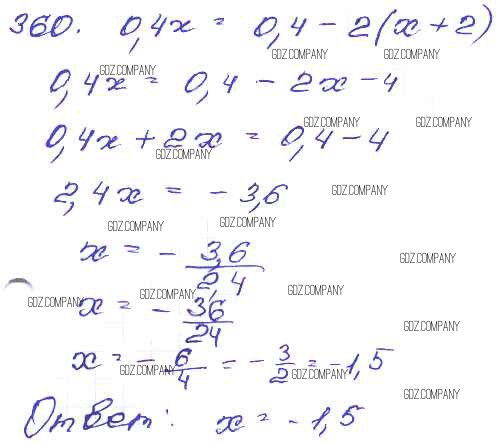 360. 0,4x = 0,4 - 2(x + 2)
GDZ.COMPANY GDZ.COMPANY
GDZ.COMPANY
0,4x = 0,4 - 2x - 4
GDZ.COMPANY GDZ.COMPANY
0,4x + 2x = 0,4 - 4
GDZ.COMPANY
2,4x = - 3,6
GDZ.COMPANY
GDZ.COMPANY GDZ.COMPANY
x = - 3,6/2,4
GDZ.COMPANY
GDZ.COMPANY GDZ.COMPANY GDZ.COMPANY
x = - 36/24
GDZ.COMPANY
x = - 6/4 = - 3/2 = -1,5
GDZ.COMPANY GDZ.COMPANY
GDZ.COMPANY
Ответ: x = -1,5